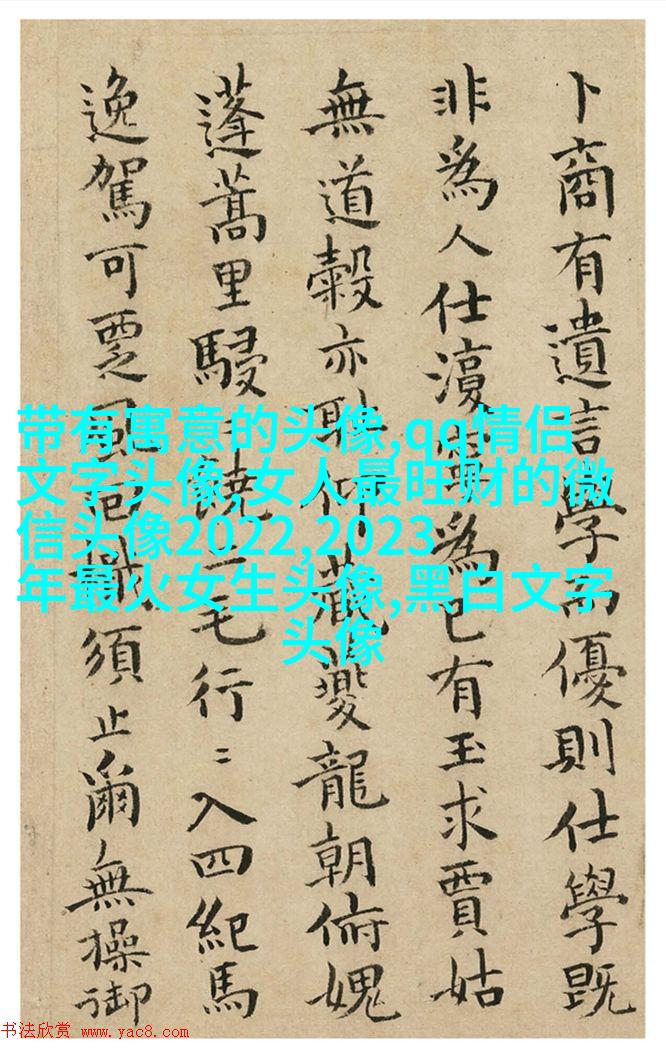 卜商有遺言學而優則仕學既
非為人仕須寧為已有玉求賈姑
無道穀亦恥仰龍夔龍朝俯媿
蓬蒿里駸饒二毛行〻入四紀馬
逸駕可覂風厄檝須止爾無操御
带有寓意的头像,qq情侣
文字头像,女人最旺财的微
信头像2022,2023
年最火女生头像,黑白文字
头像
书法欣赏 www.yac8.com